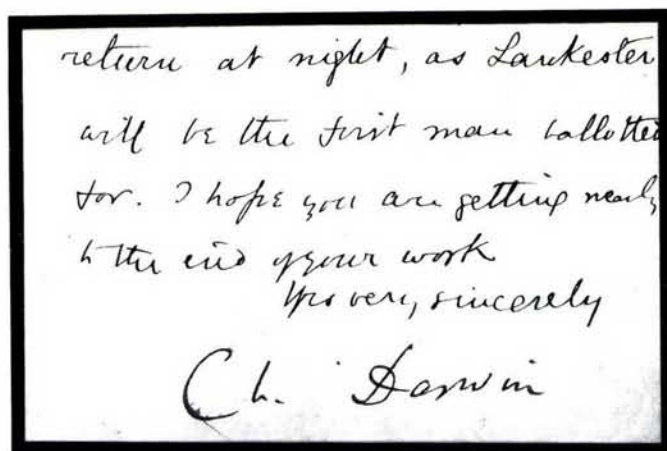 return at night, as Lankester
will be the first man ballotted
for. I hope you are getting nearly
to the end of your work
Yrs very sincerely
Ch. Darwin